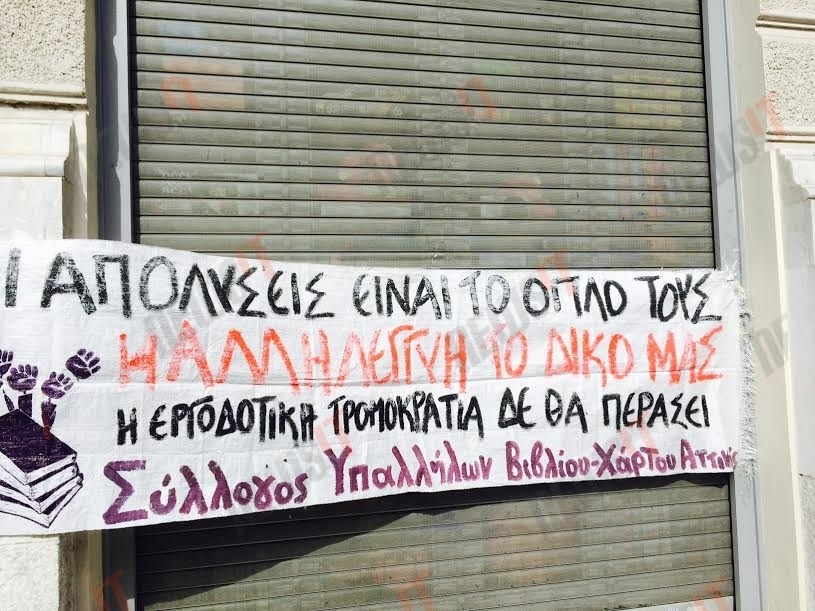 Ι ΑΠΟΛΥΣΕΙΣ ΕΙΝΑΙ ΤΟ ΟΠΛΟ ΤΟΥΣ
Η ΑΛΛΗΛΕΓΓΥΗ ΤΟ ΔΙΚΟ ΜΑΣ
Η ΕΡΓΟΔΟΤΙΚΗ ΤΡΟΜΟΚΡΑΤΙΑ ΔΕ ΘΑ ΠΕΡΑΣΕΙ
Σύλλογος Υπαλλήλων Βιβλίου-Χάρτου Αττικής